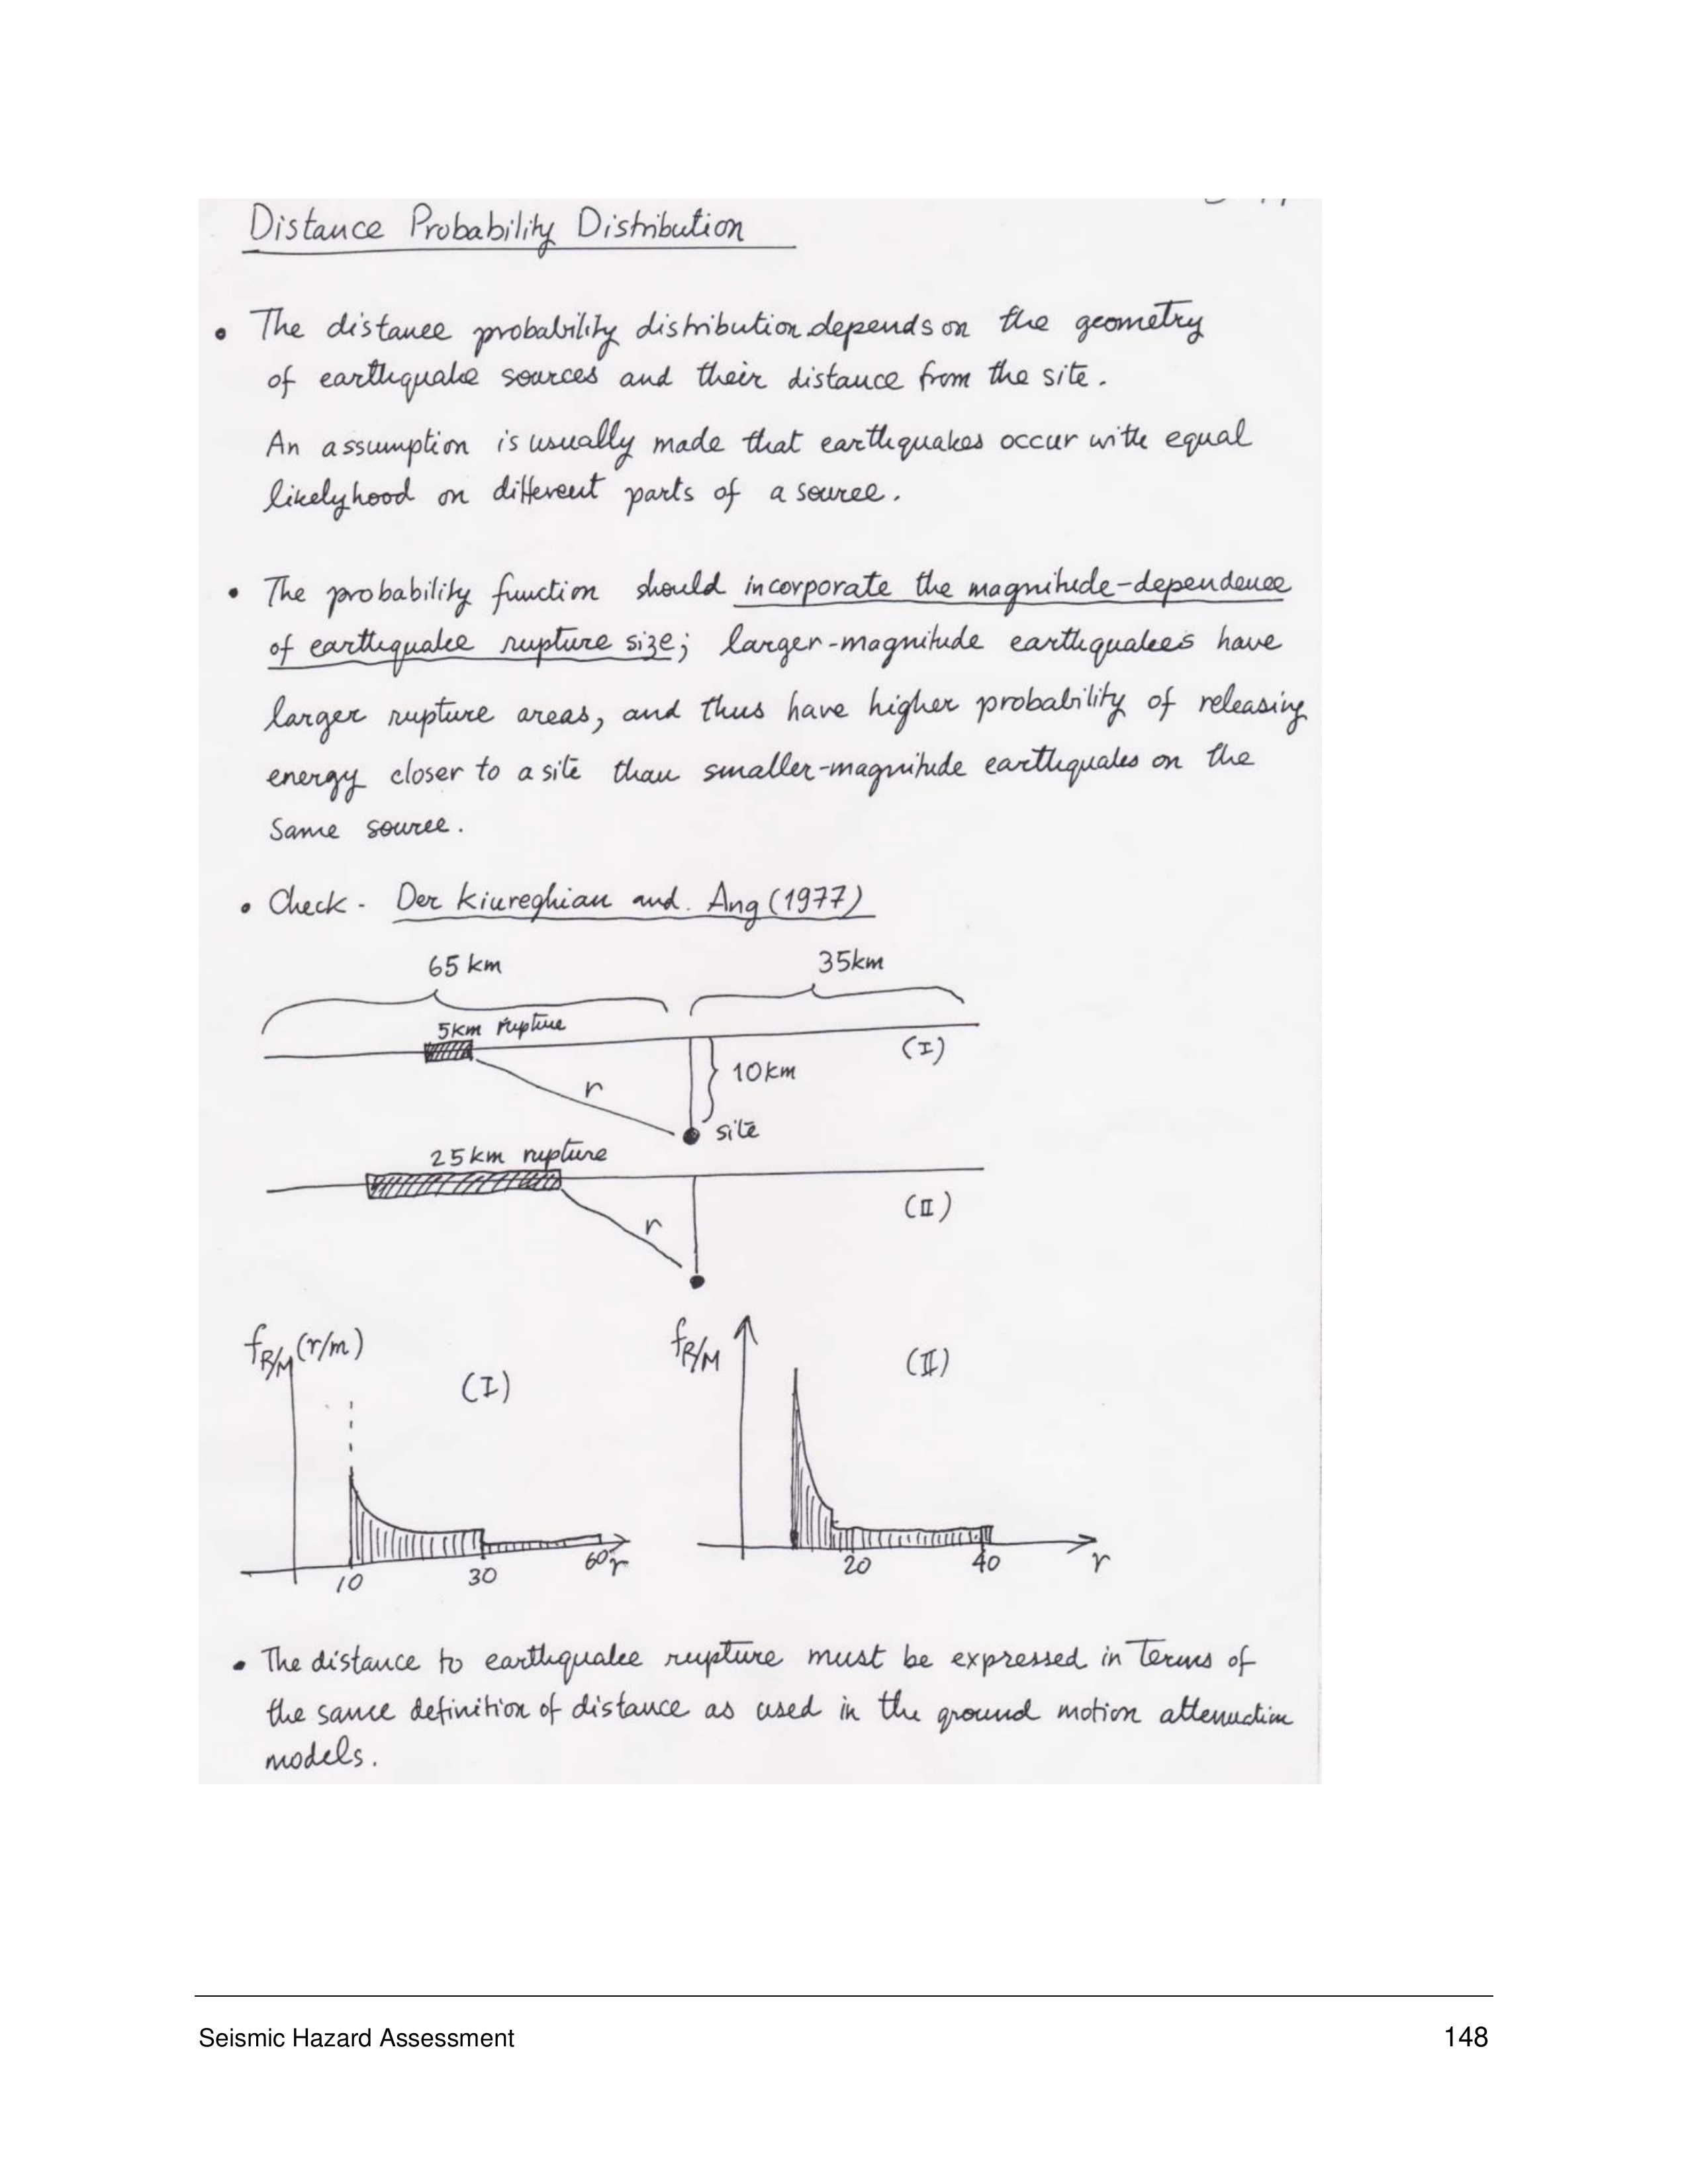 Distance Probability Distribution
• The distance probability distribution depends on the geometry
of earthquake sources and their distance from the site.
An assumption is usually made that earthquakes occur with equal
likelyhood on different parts of a source.
• The probability function should incorporate the magnitude-dependence
of earthquake rupture size; larger-magnitude earthquakes have
larger rupture areas, and thus have higher probability of releasing
energy closer to a site than smaller-magnitude earthquakes on the
same source.
• Check - Der Kiureghian and. Ang (1977)
65 km 35km
5km rupture
(I)
10km
r
site
25km rupture
(II)
r
fR/M (r/m) fR/M
(I) (II)
10 30 60 r 20 40 r
• The distance to earthquake rupture must be expressed in Terms of
the same definition of distance as used in the ground motion attenuation
models.
Seismic Hazard Assessment 148